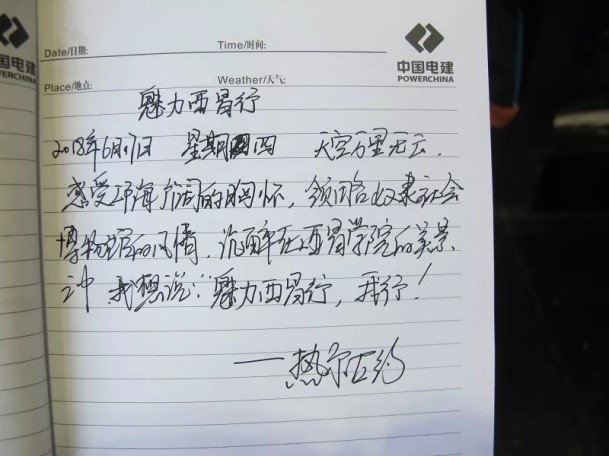 Date/日期: Time/时间:
国电建 中国电建
RCHINA POWERCHINA
Place/地点: Weather/天气:
魅力西昌行
2018年6月7日 星期四 天空万里无云.
感受邛海广阔的胸怀,领略奴隶社会
博物馆的风情,沉醉在西昌学院的美景
之中 我想说:“魅力西昌行,我行!
——热